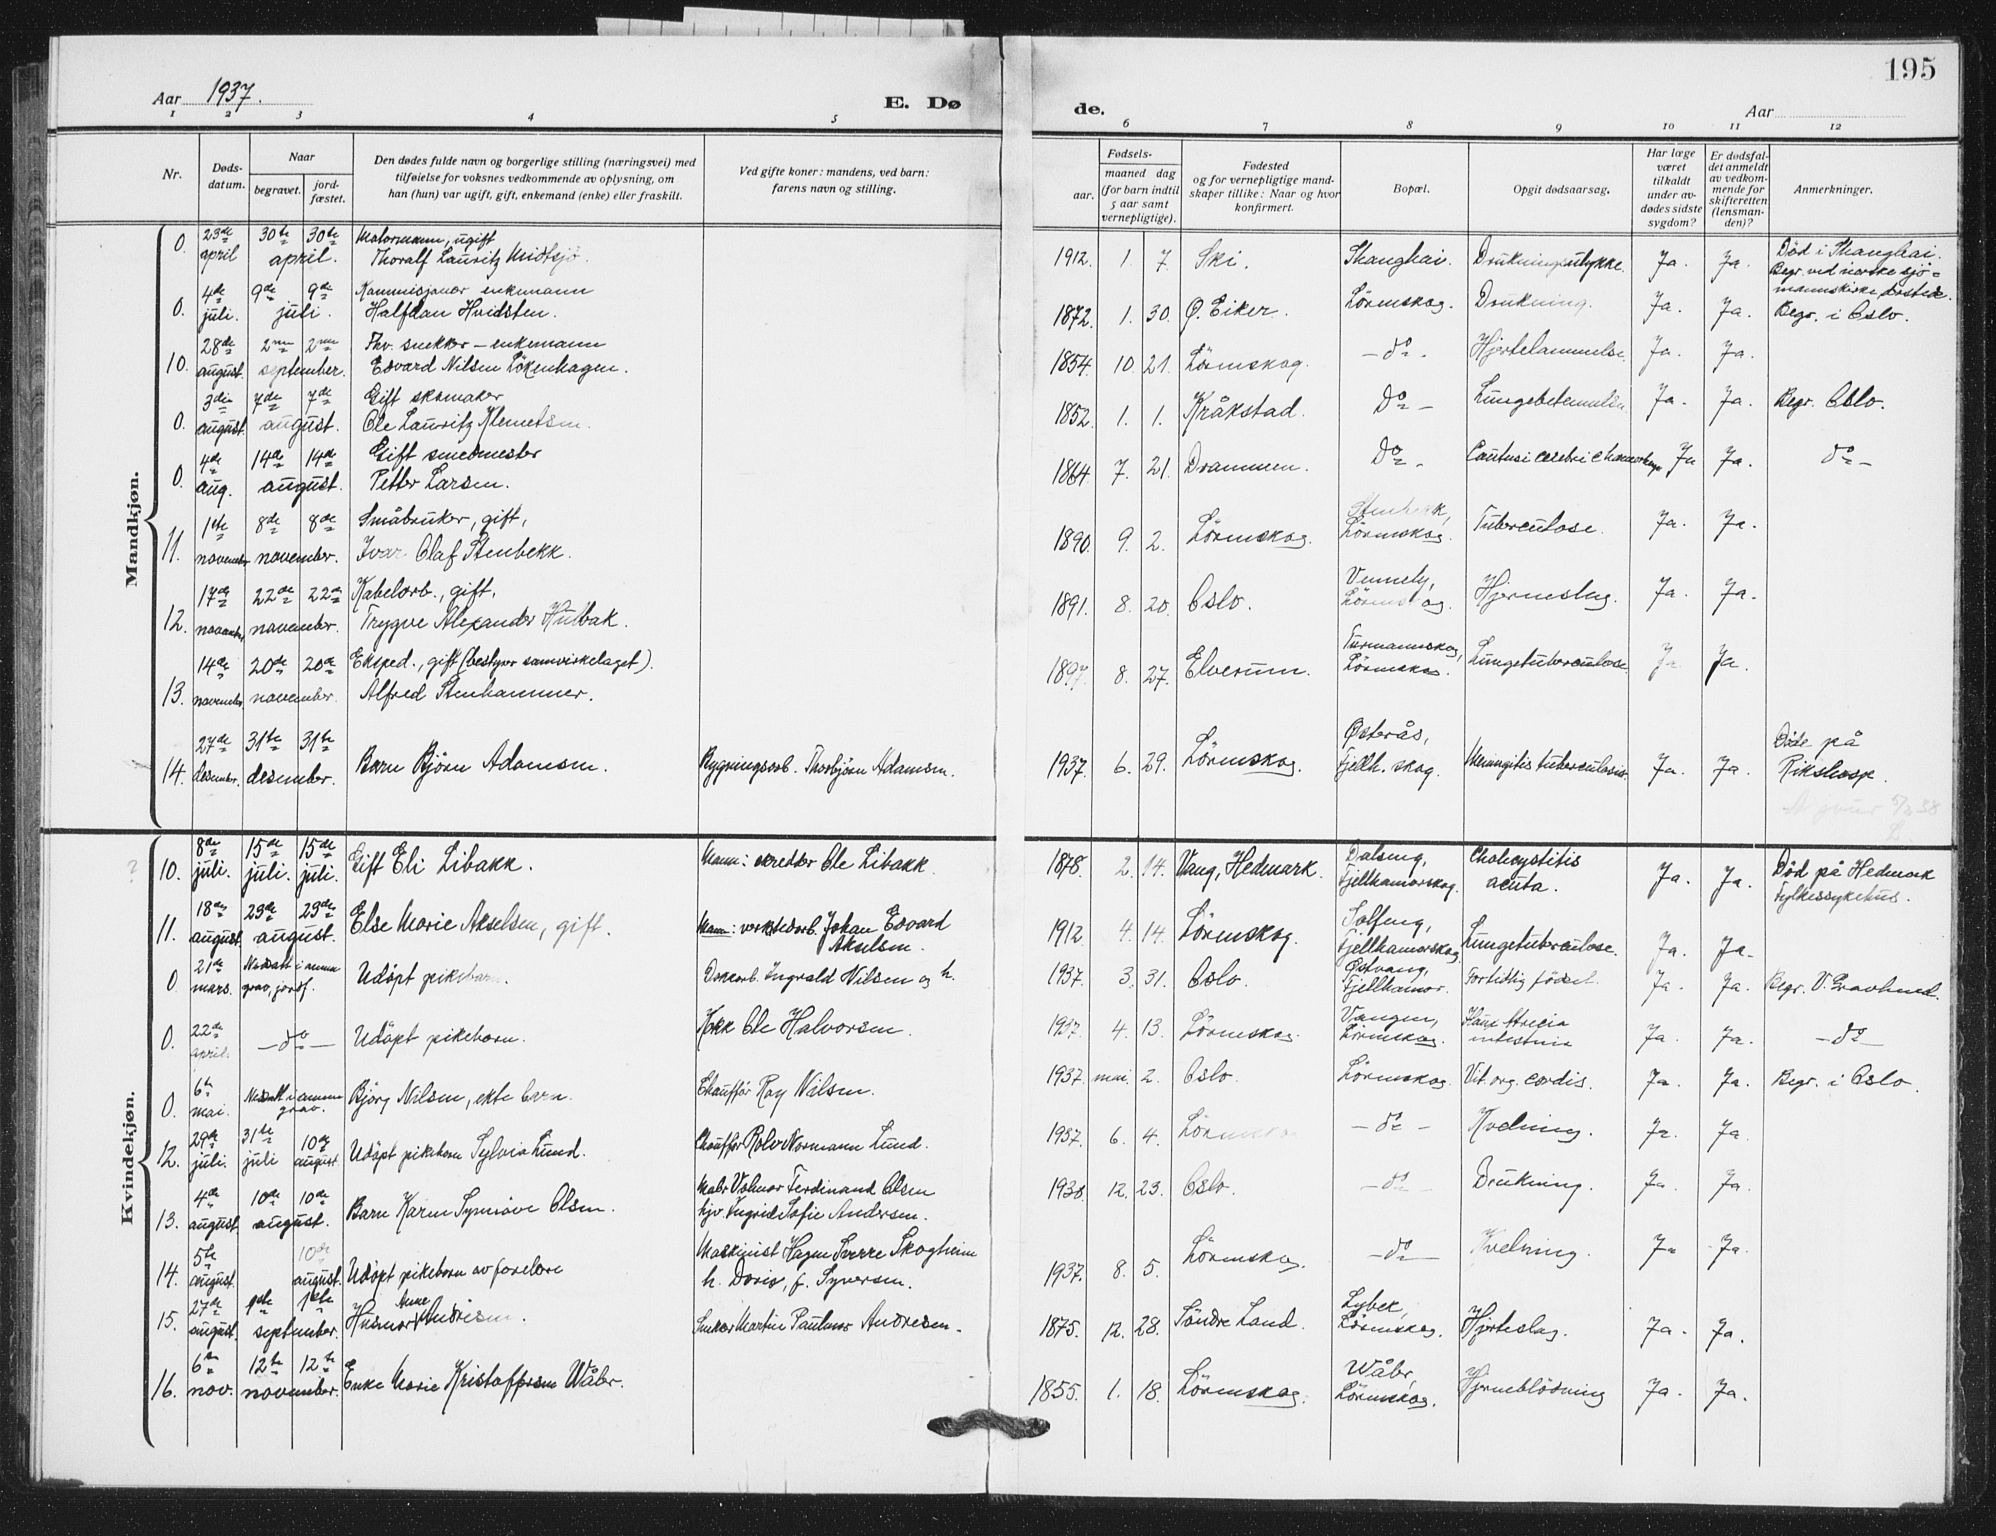 195
Aar 1937.
E. Dø
de.
Aar
1 2 3 4 5
6 7 8 9 10 11 12
Nr.
Døds-
datum.
Naar
begravet.
jord-
fæstet.
Den dødes fulde navn og borgerlige stilling (næringsvei) med
tilføielse for voksnes vedkommende av oplysning, om
han (hun) var ugift, gift, enkemand (enke) eller fraskilt.
Ved gifte koner: mandens, ved barn:
farens navn og stilling.
Fødsels-
aar.
maaned dag
(for barn indtil
5 aar samt
vernepligtige).
Fødested
og for vernepligtige mand-
skaper tillike: Naar og hvor
konfirmert.
Bopæl.
Opgit dødsaarsag.
Har læge
været
tilkaldt
under av-
dødes sidste
sygdom?
Er dødsfal-
det anmeldt
av vedkom-
mende for
skifteretten
(lensman-
den)?
Anmerkninger.
Mandkjøn.
0. 23de april 30te 30te april. Matorsmann, ugift
Thoralf Lauritz Midtsjø. 1912. 1. 7. Ski. Shanghai. Drukningsulykke. Ja. Ja. Død i Shanghai.
Begr. ved norske sjö-
mannskirke dersteds.
0. 4de juli. 9de 9de juli. Kommisjonær enkemann
Halfdan Hvidsten. 1872. 1. 30. Ø. Eiker. Lörenskog. Drukning. Ja. Ja. Begr. i Oslo.
10. 28de august. 2nn 2nn september. Fhv. snekker - enkemann
Edvard Nilsen Lökenhagen. 1854. 10. 21. Lörenskog. - do - Hjertelammelse. Ja. Ja.
0. 3die august. 7de 7de august. Gift skomaker
Ole Lauritz Klemetsen. 1852. 1. 1. Kråkstad. Do - Lungebetennelse. Ja. Ja. Begr. Oslo.
0. 4de aug. 14de 14de august. Gift smedmester
Petter Larsen. 1864. 7. 21. Drammen. Do - Ja Ja. do -
11. 1ste november 8de 8de november. Småbruker, gift,
Ivar Olaf Stenbekk. 1890. 9. 2. Lörenskog. Stenbekk,
Lörenskog. Tuberculose. Ja. Ja.
12. 17de november 22de 22de november. Kabelarb., gift,
Trygve Alexander Hulbak. 1891. 8. 20. Oslo. Vennely,
Lörenskog. Hjerneslag. Ja. Ja.
13. 14de november. 20de 20de november. Eksped., gift (bestyrer samvirkelaget).
Alfred Stenhammer. 1897. 8. 27. Elverum. Lörenskog. Lungetuberculose. Ja Ja.
14. 27de desember. 31te 31te desember. Barn Björn Adamsen. Bygningsarb. Thorbjörn Adamsen. 1937. 6. 29. Lörenskog. Østerås,
Fjellh. skog. Meningitis tuberculosis. Ja. Ja. Döde på
Rikshosp.
Kvindekjøn.
10. 8de juli. 15de juli. 15de juli. Gift Eli Libakk. Mann: skredder Ole Libakk. 1878. 2. 14. Vang, Hedmark. Dalseng,
Fjellhamarskog. Cholecystitis
acuta. Ja. Ja. Död på Hedmark
Fylkessykehus.
11. 18de august. 23de 23de august. Else Marie Akselsen, gift. Mann: verkstedarb. Johan Edvard
Akselsen. 1912 4. 14. Lörenskog. Solfeng,
Fjellhamarskog. Lungetuberculose. Ja. Ja.
0 21de mars. Nedsatt i annen
grav, jordf. Udöpt pikebarn. Ingvald Nilsen og h. 1937. 3. 31. Oslo. Østvang,
Fjellhamar. Fortidlig födsel. Ja. Ja. Begr. V. Gravlund.
0. 22de april. - do - Udöpt pikebarn. Kokk Ole Halvorsen. 1937. 4. 13. Lörenskog. Vangen,
Lörenskog. Ja Ja. - do -
0. 6te mai. Nedsatt i annen
grav. Björg Nilsen, ekte barn. Chauffør Roy Nilsen. 1937. mai. 2. Oslo. Lörenskog. Vit. org. cordis. Ja. Ja. Begr. i Oslo.
12. 29de juli. 31te juli 10de august. Udöpt pikebarn Sylvia Lund. Chauffør Rolv Normann Lund. 1937. 6. 4. Lörenskog - do - Kvelning. Ja. Ja.
13. 4de august. 10de 10de august. Barn Karin Synnöve Olsen. Malr Volmar Ferdinand Olsen
hjv. Ingrid Sofie Andersen. 1930. 12. 23. Oslo. - do - Drukning. Ja. Ja.
14. 5te august. 10de august. Udöpt pikebarn av foreldre Maskinist Hagen Sverre Skogheim
h. Doris, f. Syversen. 1937. 8. 5. Lörenskog. - do - Kvelning. Ja Ja.
15. 27de august. 1ste 1ste september. Husmor Andresen. Snekker Martin Paulinus Andresen. 1875. 12. 28. Söndre Land. Lybek,
Lörenskog. Hjerteslag. Ja. Ja.
16. 6te nov. 12te 12te november. Enke Marie Kristoffersen Wåler. 1855. 1. 18. Lörenskog. Wåler,
Lörenskog. Hjerneblödning Ja. Ja.